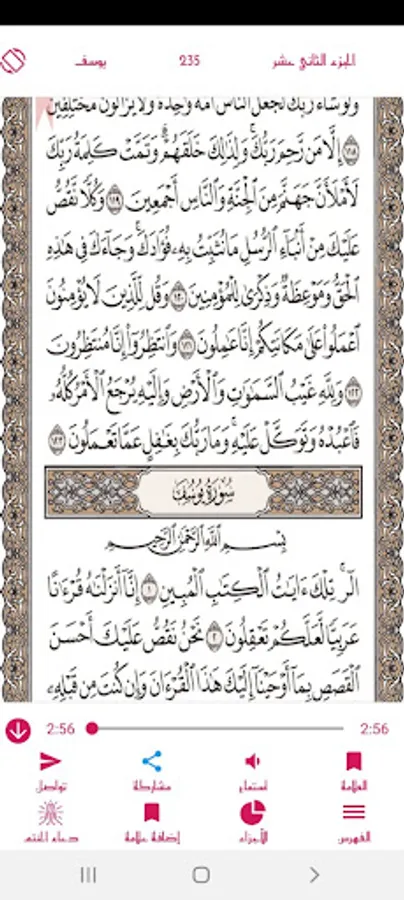 الجزء الثاني عشر 235 يوسف
ولو شاء ربك لجعل الناس أمة وحدة ولا يزالون مختلفين
١١٨ إِلَّا مَن رَّحِمَ رَبُّكَ وَلِذَٰلِكَ خَلَقَهُمْ وَتَمَّتْ كَلِمَةُ رَبِّكَ
لَأَمْلَأَنَّ جَهَنَّمَ مِنَ الْجِنَّةِ وَالنَّاسِ أَجْمَعِينَ ١١٩ وَكُلًّا نَّقُصُّ
عَلَيْكَ مِنْ أَنۢبَاءِ الرُّسُلِ مَا نُثَبِّتُ بِهِۦ فُؤَادَكَ وَجَاءَكَ فِي هَٰذِهِ
الْحَقُّ وَمَوْعِظَةٌ وَذِكْرَىٰ لِلْمُؤْمِنِينَ ١٢٠ وَقُل لِّلَّذِينَ لَا يُؤْمِنُونَ
اعْمَلُوا عَلَىٰ مَكَانَتِكُمْ إِنَّا عَٰمِلُونَ ١٢١ وَانتَظِرُوا إِنَّا مُنتَظِرُونَ
١٢٢ وَلِلَّهِ غَيْبُ السَّمَٰوَٰتِ وَالْأَرْضِ وَإِلَيْهِ يُرْجَعُ الْأَمْرُ كُلُّهُۥ
فَاعْبُدْهُ وَتَوَكَّلْ عَلَيْهِ وَمَا رَبُّكَ بِغَٰفِلٍ عَمَّا تَعْمَلُونَ ١٢٣
سُورَةُ يُوسُفَ
بِسْمِ اللَّهِ الرَّحْمَٰنِ الرَّحِيمِ
الٓر تِلْكَ ءَايَٰتُ الْكِتَٰبِ الْمُبِينِ ١ إِنَّا أَنزَلْنَٰهُ قُرْءَٰنًا
عَرَبِيًّا لَّعَلَّكُمْ تَعْقِلُونَ ٢ نَحْنُ نَقُصُّ عَلَيْكَ أَحْسَنَ
الْقَصَصِ بِمَا أَوْحَيْنَا إِلَيْكَ هَٰذَا الْقُرْءَانَ وَإِن كُنتَ مِن قَبْلِهِۦ
2:56 2:56
العلامة استماع مشاركة تواصل
الفهرس الأجزاء إضافة علامة دعاء الختم